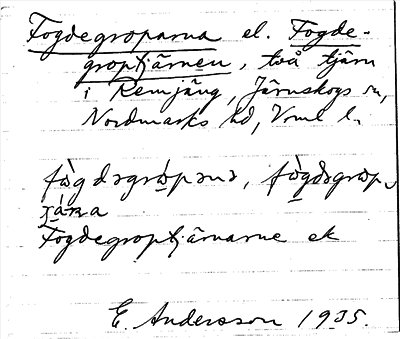 Fogdegroparna el. Fogde-
groptjärnen, två tjärn
i Remjäng, Järnskogs sn,
Nordmarks hd, Vrml l.
fògdəgrópənə, fògdəgrop
Fogdegroptjärnarne ek
E. Andersson 1935.